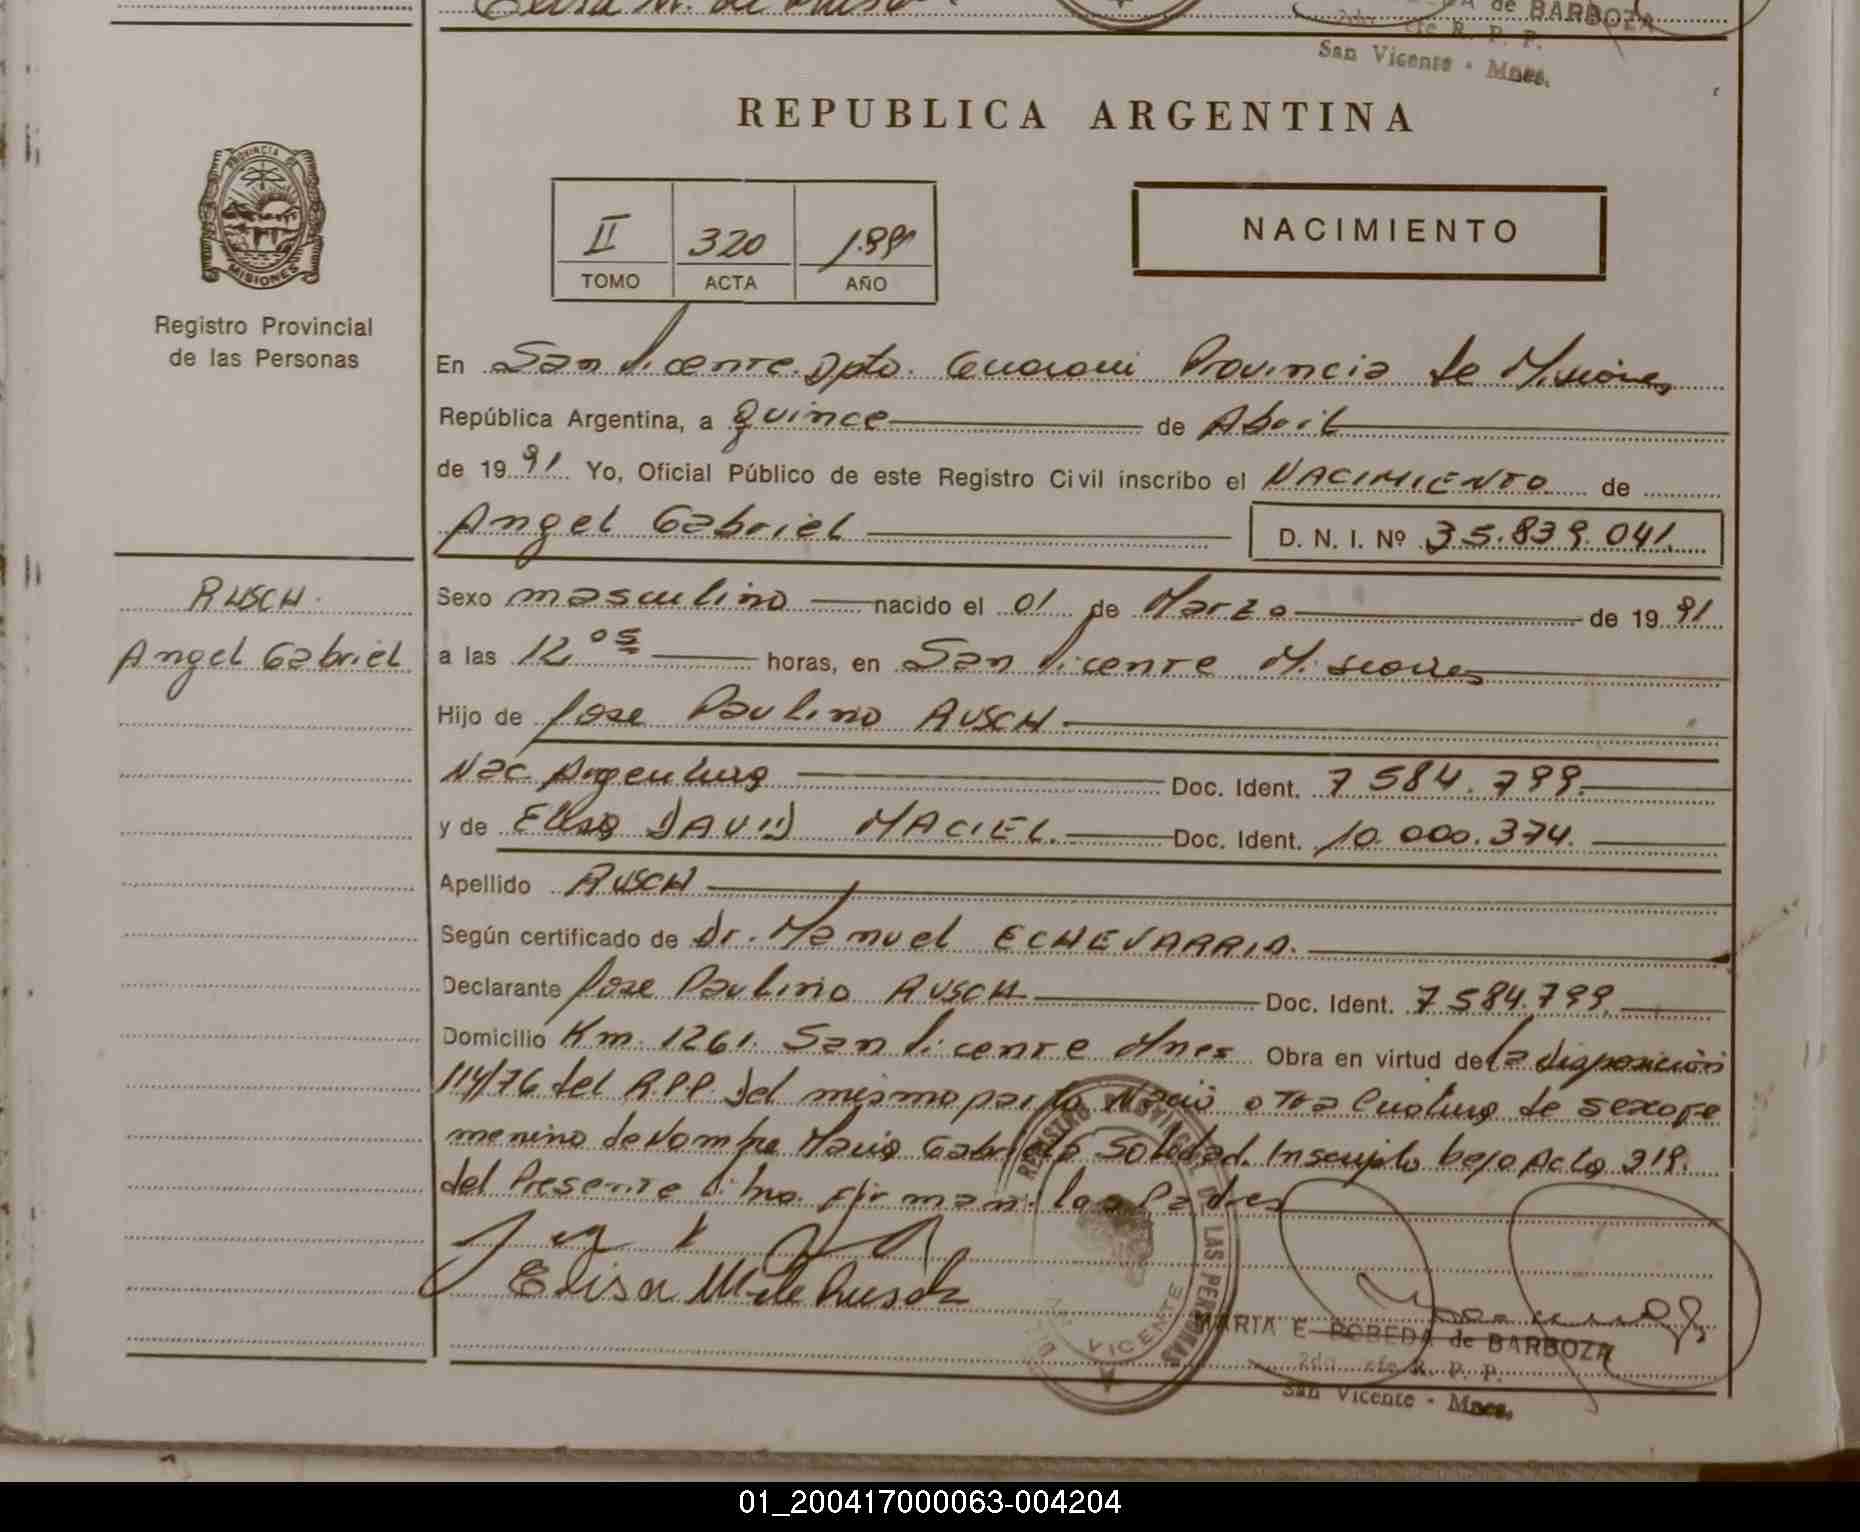 Elisa M. de Rusch
de BARBOZA
2da Jefe R. P. P.
San Vicente - Mnes.
REPUBLICA ARGENTINA
PROVINCIA DE
MISIONES
Registro Provincial
de las Personas
II 320 1.991
TOMO ACTA AÑO
NACIMIENTO
En San Vicente. Dpto. Guarani Provincia de Misiones
República Argentina, a quince de Abril
de 19 91 Yo, Oficial Público de este Registro Civil inscribo el NACIMIENTO de
Angel Gabriel D. N. I. Nº 35.839.041.
RUSCH
Angel Gabriel
Sexo masculino nacido el 01 de Marzo de 19 91
a las 12 05 horas, en San Vicente Misiones
Hijo de Jose Paulino RUSCH
Nac. Argentina Doc. Ident. 7 584.799.
y de Elisa DAVID MACIEL. Doc. Ident. 10.000.374.
Apellido RUSCH
Según certificado de Dr. Manuel ECHEVARRIA.
Declarante Jose Paulino RUSCH Doc. Ident. 7 584.799.
Domicilio Km. 1261. San Vicente Mnes Obra en virtud de la disposición
114/76 del R.P.P. Del mismo parto Nació otra Criatura de sexo fe
menino de Nombre Maria Gabriela Soledad. Inscripto bajo Acta 319.
del Presente Libro. Firman: los Padres
Elisa M. de Rusch
REGISTRO PROVINCIAL DE LAS PERSONAS
VICENTE
MARTA E. POBEDA de BARBOZA
2da Jefe R. P. P.
San Vicente - Mnes.
01_200417000063-004204